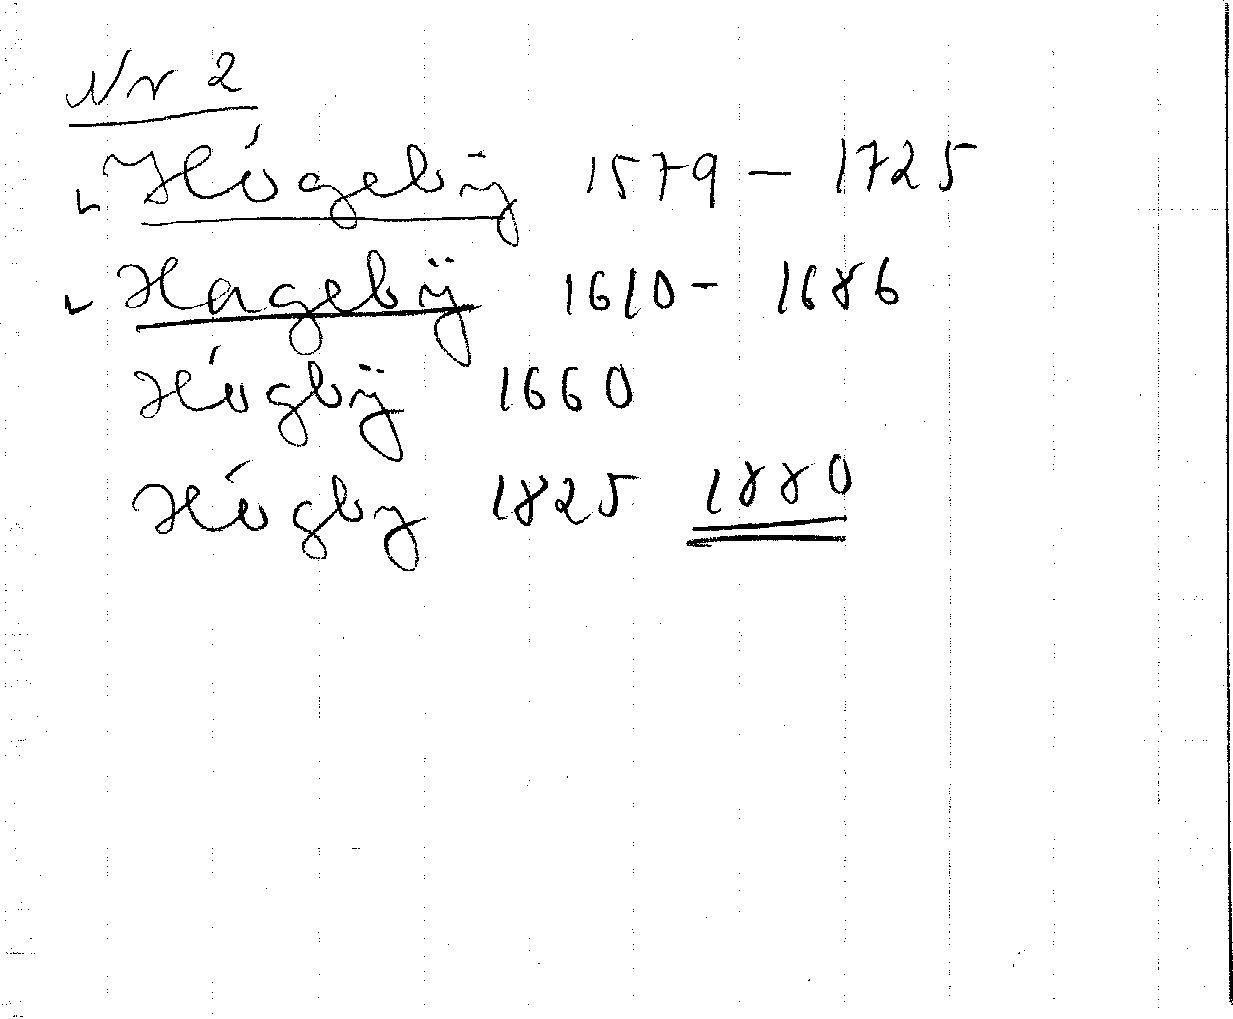 Nr 2
Högebÿ 1579 - 1725
Hagebÿ 1610 - 1686
Högbÿ 1660
Högby 1825 1880